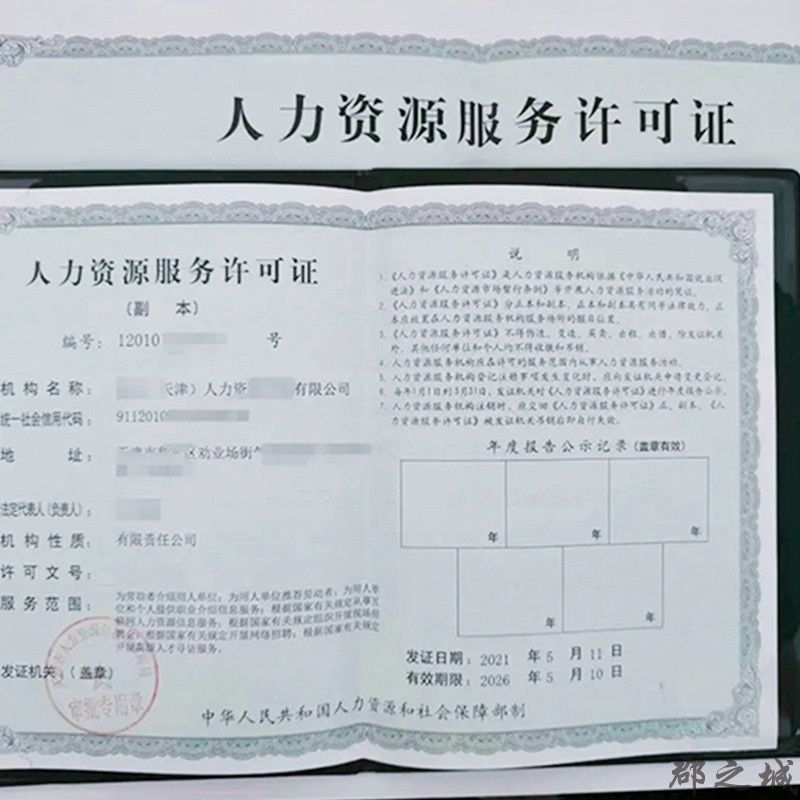 人力资源服务许可证
人力资源服务许可证
（副 本）
编号： 12010 号
机构名称： 天津）人力资 有限公司
统一社会信用代码： 9112010
地 址： 区劝业场街
法定代表人（负责人）：
机构性质： 有限责任公司
许可文号：
服务范围： 为劳动者介绍用人单位；为用人单位推荐劳动者；为用人单
位和个人提供职业介绍信息服务；根据国家有关规定从事互
联网人力资源信息服务；根据国家有关规定组织开展现场招
聘会；根据国家有关规定开展网络招聘；根据国家有关规定
开展高级人才寻访服务。
发证机关（盖章）
审批专用章
说 明
1.《人力资源服务许可证》是人力资源服务机构依据《中华人民共和国就业促
进法》和《人力资源市场暂行条例》等开展人力资源服务活动的凭证。
2.《人力资源服务许可证》分正本和副本，正本和副本具有同等法律效力，正
本应放置在人力资源服务机构服务场所的醒目位置。
3.《人力资源服务许可证》不得伪造、变造、买卖、出租、出借，除发证机关
外，其他任何单位和个人均不得收缴和吊销。
4.人力资源服务机构应在许可的服务范围内从事人力资源服务活动。
5.人力资源服务机构登记注册事项发生变化时，应向发证机关申请变更登记。
6.每年1月1日到3月31日，发证机关对《人力资源服务许可证》进行年度报告公示。
7.人力资源服务机构注销时，应交回《人力资源服务许可证》正、副本。《人
力资源服务许可证》被发证机关吊销后即自行失效。
年度报告公示记录（盖章有效）
年 年 年
年 年
发证日期： 2021 年 5 月 11 日
有效期限： 2026 年 5 月 10 日
中华人民共和国人力资源和社会保障部制
郡之城